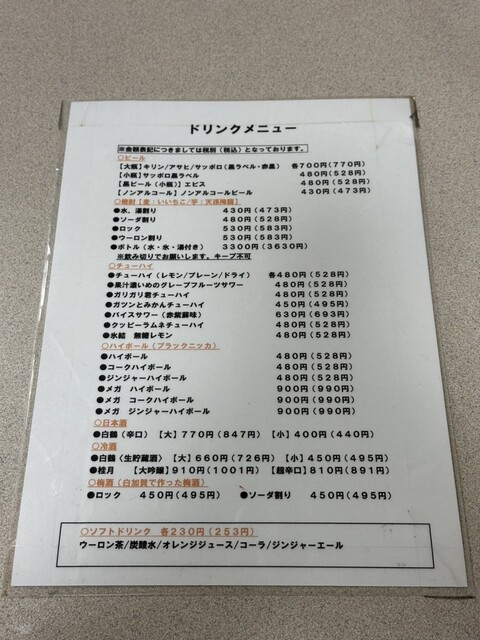 ドリンクメニュー
※金額表記につきましては税別(税込)となっております。
○ビール
【大瓶】キリン/アサヒ/サッポロ(黒ラベル・赤星) 各700円(770円)
【小瓶】サッポロ黒ラベル 480円(528円)
【黒ビール(小瓶)】エビス 480円(528円)
【ノンアルコール】ノンアルコールビール 430円(473円)
○焼酎【麦:いいちこ/芋:天孫降臨】
●水、湯割り 430円(473円)
●ソーダ割り 480円(528円)
●ロック 530円(583円)
●ウーロン割り 530円(583円)
●ボトル(水・氷・湯付き) 3300円(3630円)
※飲み切りでお願いします。キープ不可
○チューハイ
●チューハイ(レモン/プレーン/ドライ) 各480円(528円)
●果汁濃いめのグレープフルーツサワー 480円(528円)
●ガリガリ君チューハイ 480円(528円)
●ガツンとみかんチューハイ 450円(495円)
●バイスサワー(赤紫蘇味) 630円(693円)
●クッピーラムネチューハイ 480円(528円)
●氷結 無糖レモン 480円(528円)
○ハイボール(ブラックニッカ)
●ハイボール 480円(528円)
●コークハイボール 480円(528円)
●ジンジャーハイボール 480円(528円)
●メガ ハイボール 900円(990円)
●メガ コークハイボール 900円(990円)
●メガ ジンジャーハイボール 900円(990円)
○日本酒
●白鶴(辛口) 【大】770円(847円) 【小】400円(440円)
○冷酒
●白鶴(生貯蔵酒) 【大】660円(726円) 【小】450円(495円)
●桂月 【大吟醸】910円(1001円) 【超辛口】810円(891円)
○梅酒(白加賀で作った梅酒)
●ロック 450円(495円) ●ソーダ割り 450円(495円)
○ソフトドリンク 各230円(253円)
ウーロン茶/炭酸水/オレンジジュース/コーラ/ジンジャーエール